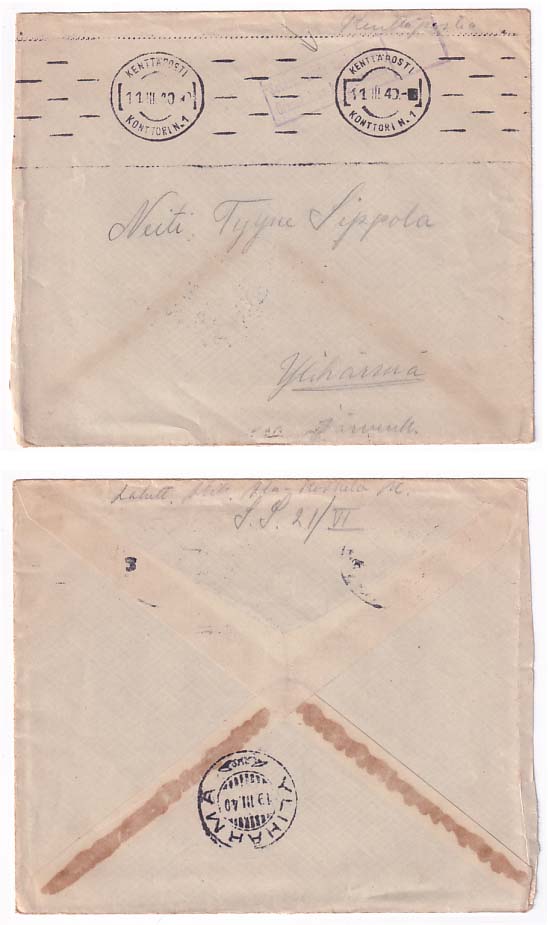 Kenttäpostia
KENTTÄPOSTI
11.III.40.
KONTTORI N.1
KENTTÄPOSTI
11.III.40.-
KONTTORI N.1
Neiti Tyyne Sippola
Ylihärmä
Lähett.
S.P. 21/VI
3
YLIHÄRMÄ
19.III.40